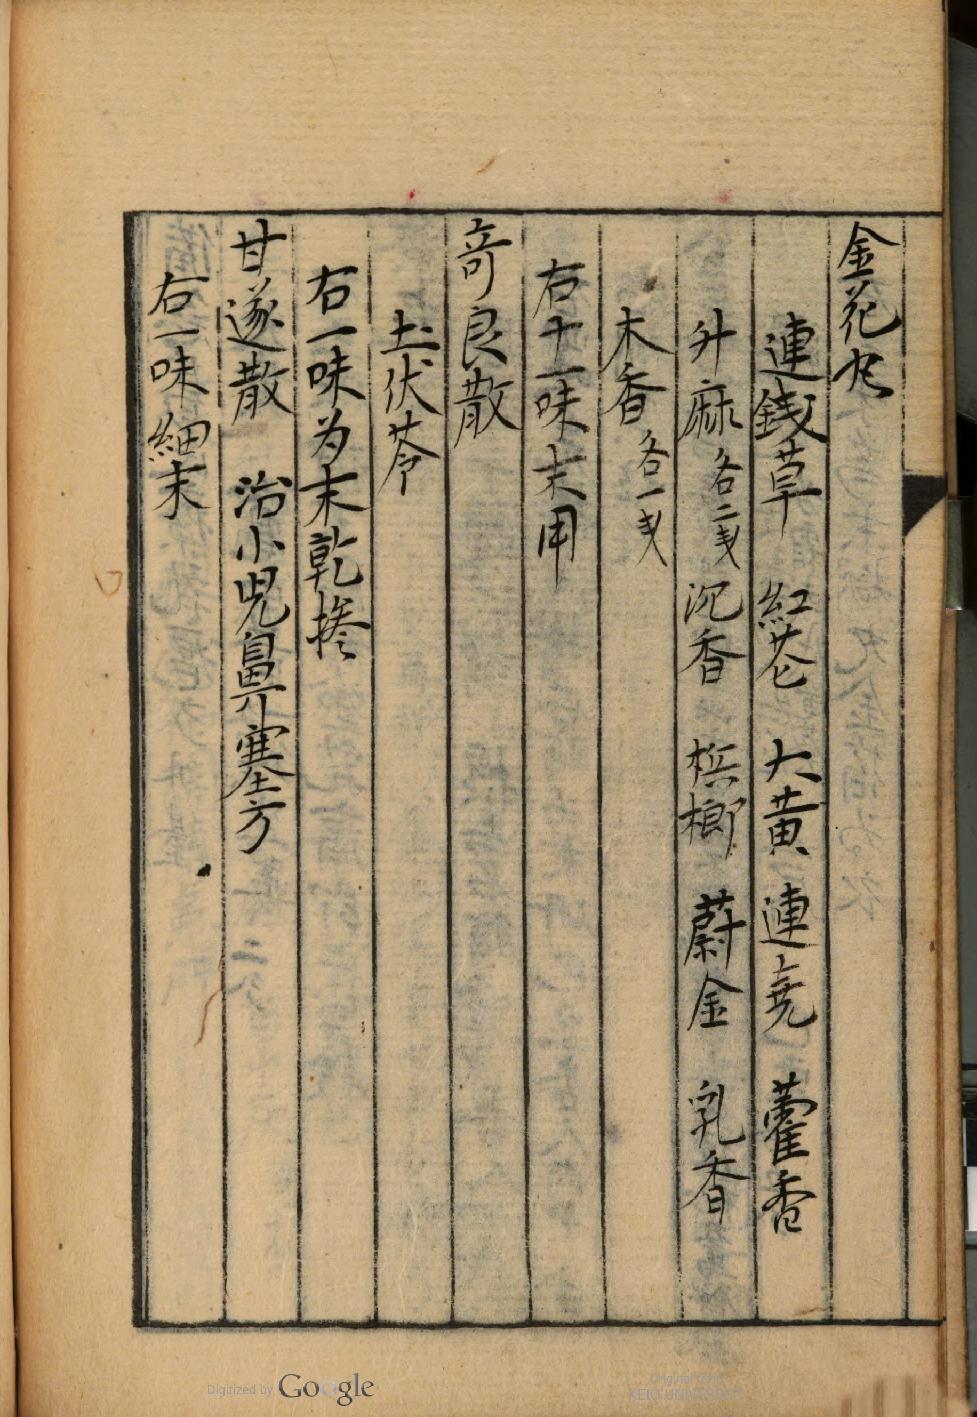 金花丸
連錢草 紅花 大黄 連尭 藿香
升麻各二戔 沉香 梹榔 蔚金 乳香
木香各一戔
右十一味末用
奇良散
土伏苓
右一味为末乾摻
甘遂散 治小児鼻塞方
右一味細末
Digitized by Google
Original from
KEIO UNIVERSITY